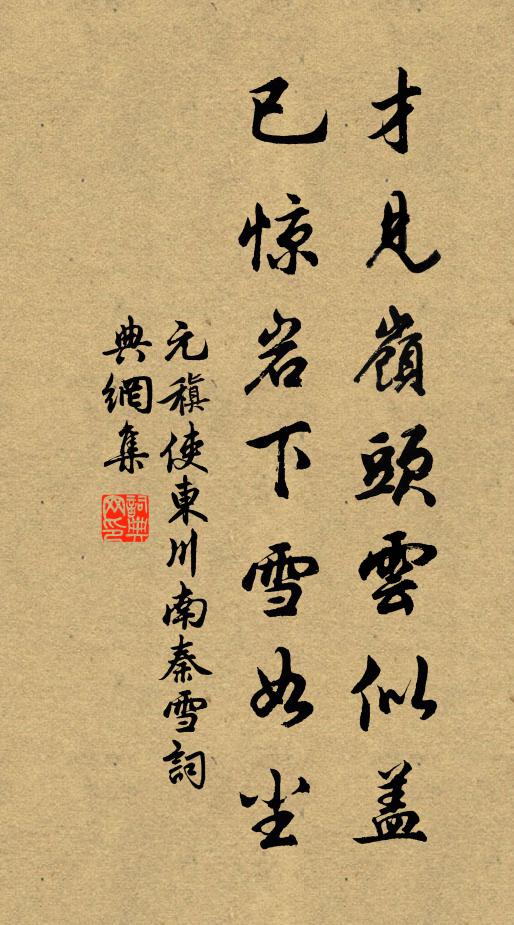 才見嶺頭雲似盖
已惊岩下雪如尘
元稹使東川南秦雪詞
典網集
詞典網印